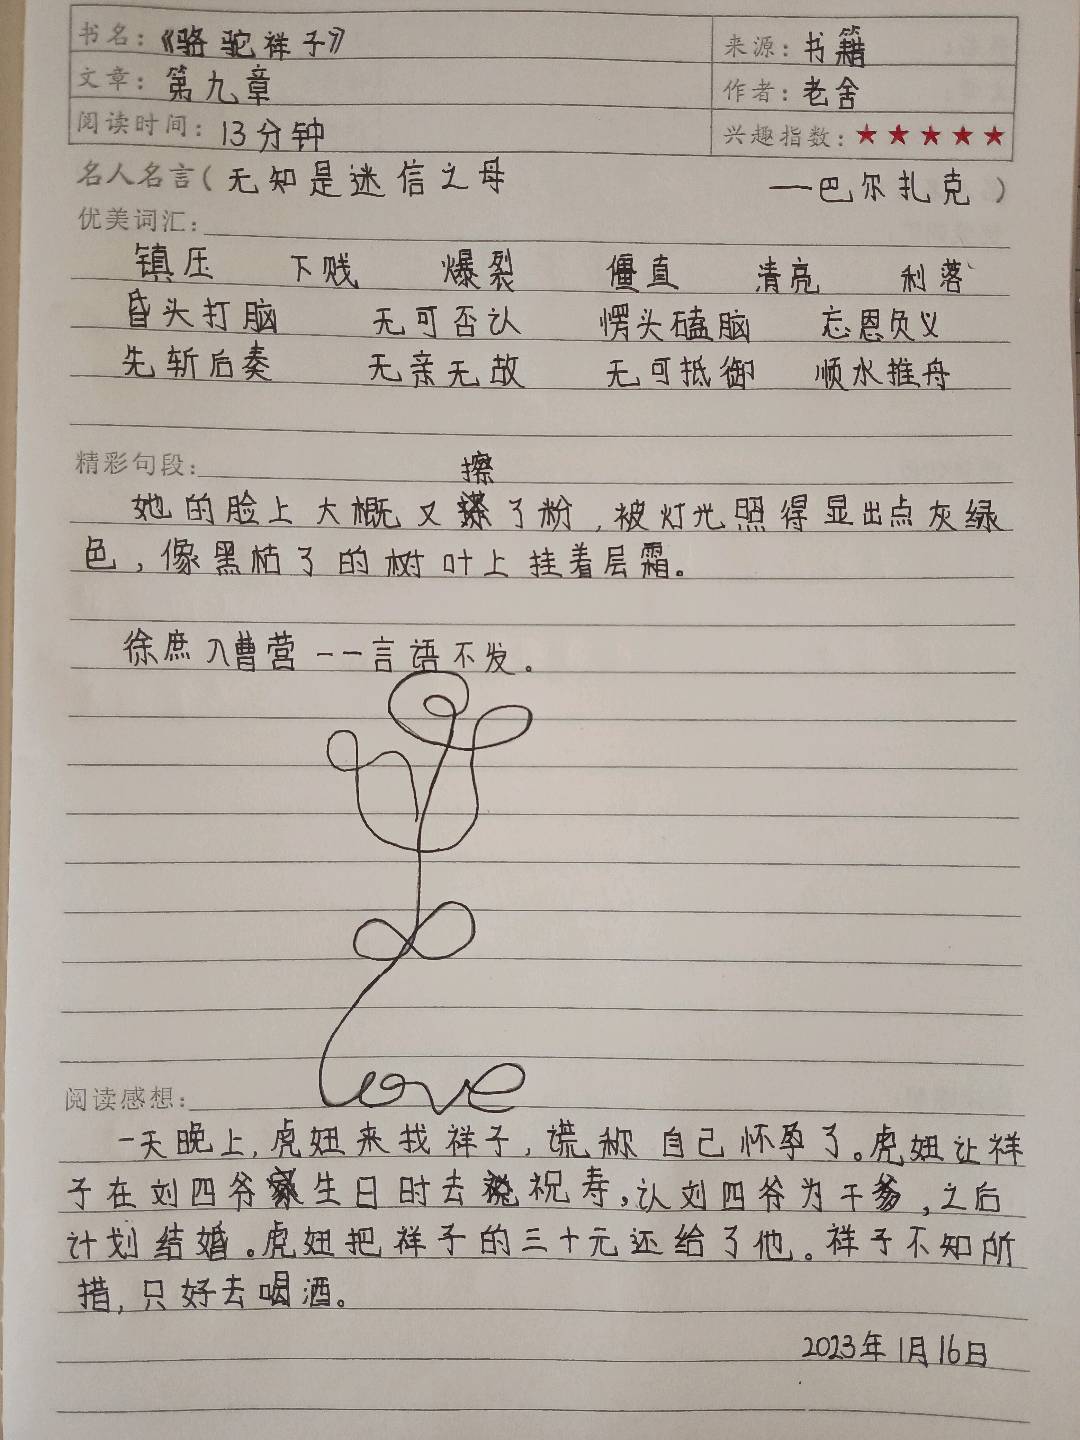 书名：《骆驼祥子》 来源：书籍
文章：第九章 作者：老舍
阅读时间：13分钟 兴趣指数：★★★★★
名人名言（无知是迷信之母 ——巴尔扎克）
优美词汇：
镇压 下贱 爆裂 僵直 清亮 利落
昏头打脑 无可否认 愣头磕脑 忘恩负义
先斩后奏 无亲无故 无可抵御 顺水推舟
精彩句段：
她的脸上大概又擦了粉，被灯光照得显出点灰绿
色，像黑枯了的树叶上挂着层霜。
徐庶入曹营——言语不发。
love
阅读感想：
一天晚上，虎妞来找祥子，谎称自己怀孕了。虎妞让祥
子在刘四爷生日时去祝寿，认刘四爷为干爹，之后
计划结婚。虎妞把祥子的三十元还给了他。祥子不知所
措，只好去喝酒。
2023年1月16日